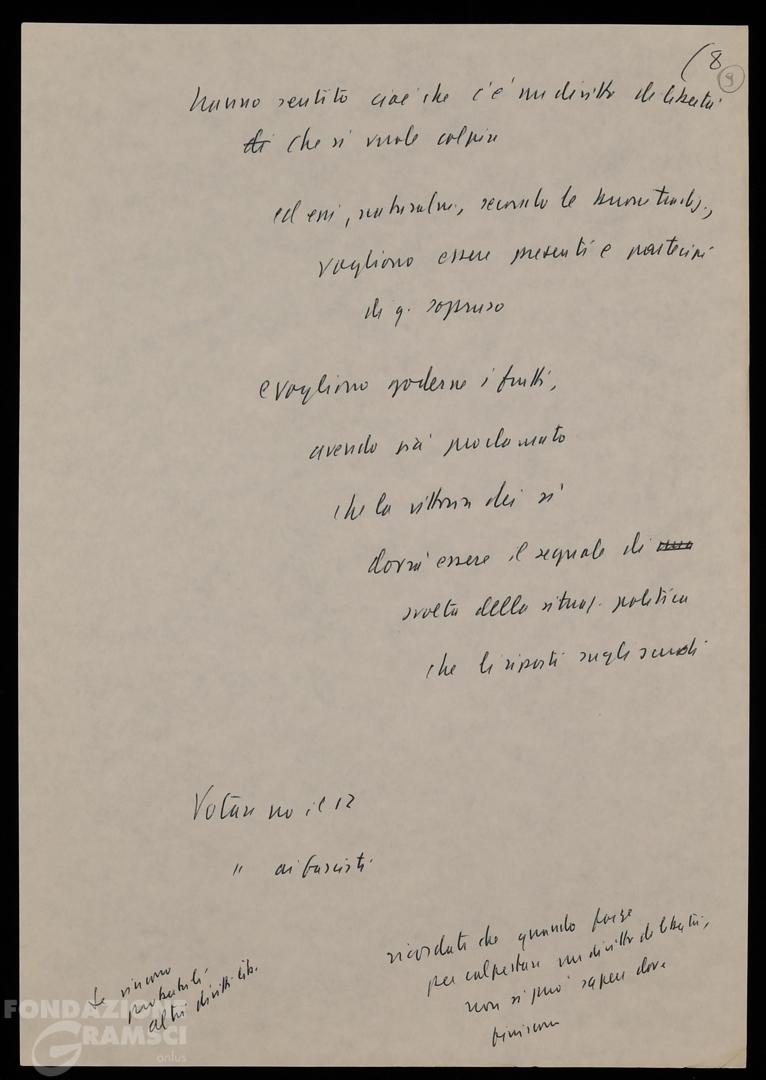 (8
9
hanno sentito cioè che c'è un diritto di libertà
di che si vuole colpire
ed essi, naturalm., secondo le buone tradiz.,
vogliono essere presenti e partecipi
di q. sopruso
e vogliono goderne i frutti,
avendo già proclamato
che la vittoria dei sì
dovrà essere il segnale di
svolta della situaz. politica
che li riporti sugli scudi
Votare no il 12
" ai fascisti
ricordate che quando
per calpestare un diritto di libertà,
non si può sapere dove
finiscono
Se vincono
probabili
altri diritti lib.
FONDAZIONE
GRAMSCI
onlus